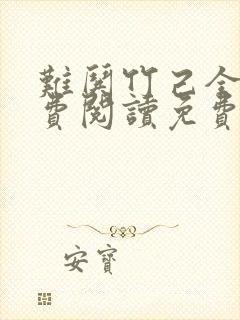 難鬪竹己全
費閱讀免費
安寶